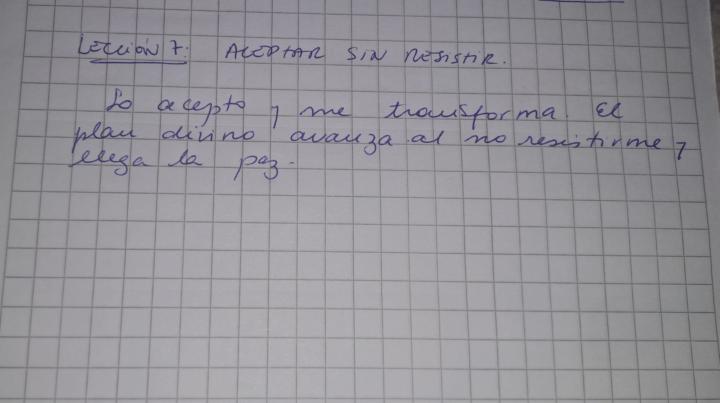 LECCIÓN 7: ACEPTAR SIN RESISTIR.
Lo acepto y me transforma. El
plan divino avanza al no resistirme y
llega la paz.